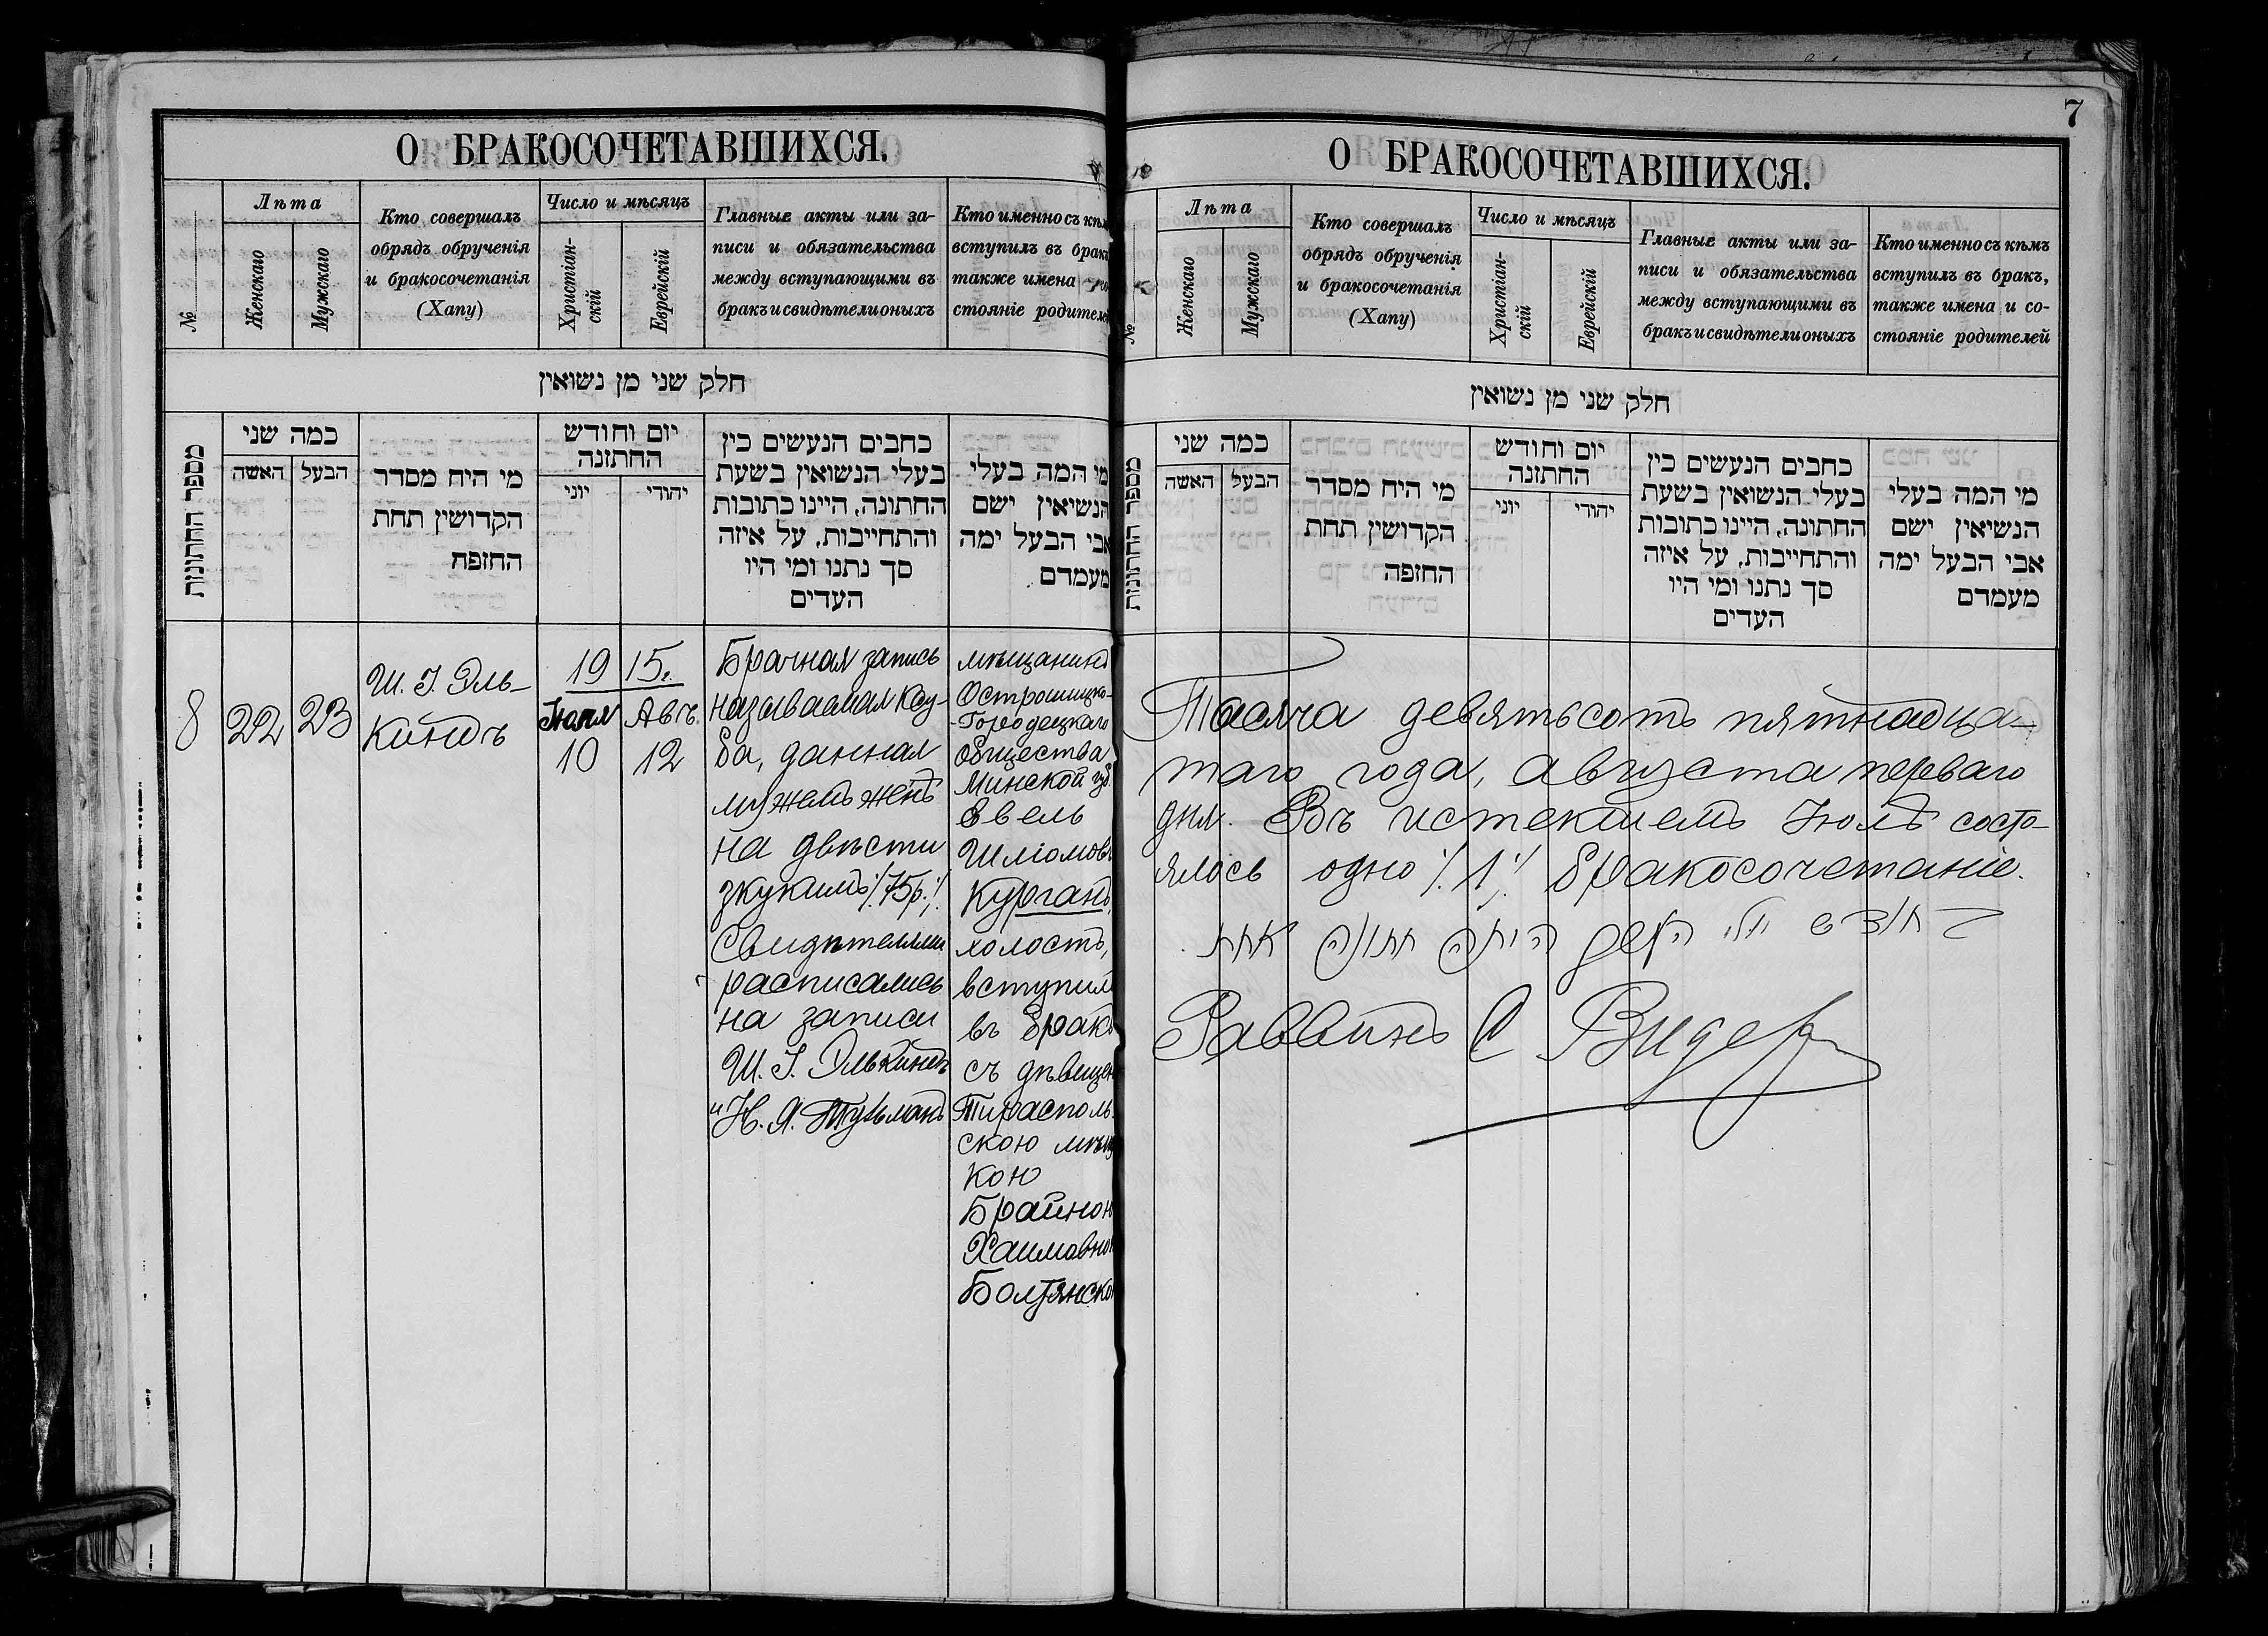 7
О БРАКОСОЧЕТАВШИХСЯ.
№
Лѣта
Женскаго
Мужскаго
Кто совершалъ
обрядъ обрученія
и бракосочетанія
(Хапу)
Число и мѣсяцъ
Христіан-
скій
Еврейскій
Главные акты или за-
писи и обязательства
между вступающими въ
бракъ и свидѣтели оныхъ
Кто именно съ кѣм
вступилъ въ брак
также имена
стояніе родителе
חלק שני מן נשואין
מספר החתונות
כמה שני
האשה
הבעל
מי היח מסדר
הקדושין תחת
החזפח
יום וחודש
החתזנה
יוני
יהודי
כחבים הנעשים כין
בעלי הנשואין בשעת
החתונה, היינו כתובות
והתחייבות, על איזה
סך נתנו ומי היו
העדים
מי המה בעלי
הנשיאין ישם
אבי הבעל ימה
מעמדם
8
22
23
Ш. I. Эль-
киндъ
1915г.
Іюля
10
Авг.
12
Брачная запись
называемая Ксу-
ба, данная
мужемъ женѣ
на двѣсти
зкукимъ ⁒ 75р. ⁒
Свидѣтелями
расписались
на записи
Ш. I. Элькиндъ
и Н. Я. Тульманъ
мѣщанинъ
Острошицко-
-Городецкаго
общества
Минской губ.
Евель
Шліомовъ
Курганъ,
холостъ,
вступилъ
въ бракъ
съ дѣвицею
Тирасполь-
скою мѣщ
кою
Брайною
Хаимовно
Болтянско
О БРАКОСОЧЕТАВШИХСЯ.
№
Лѣта
Женскаго
Мужскаго
Кто совершалъ
обрядъ обрученія
и бракосочетанія
(Хапу)
Число и мѣсяцъ
Христіан-
скій
Еврейскій
Главные акты или за-
писи и обязательства
между вступающими въ
бракъ и свидѣтели оныхъ
Кто именно съ кѣмъ
вступилъ въ бракъ,
также имена и со-
стояніе родителей
חלק שני מן נשואין
מספר החתונות
כמה שני
האשה
הבעל
מי היח מסדר
הקדושין תחת
החזפה
יום וחודש
החתזנה
יוני
יהודי
כחבים הנעשים כין
בעלי הנשואין בשעת
החתונה, היינו כתובות
והתחייבות, על איזה
סך נתנו ומי היו
העדים
מי המה בעלי
הנשיאין ישם
אבי הבעל ימה
מעמדם
Тысяча девятьсотъ пятнадца-
таго года, августа перваго
дня. Въ истекшемъ Іюлѣ состо-
ялось одно ⁒ 1 ⁒ бракосочетаніе.
בחודש יולי היתה חתונה אחת
Раввинъ С Видер